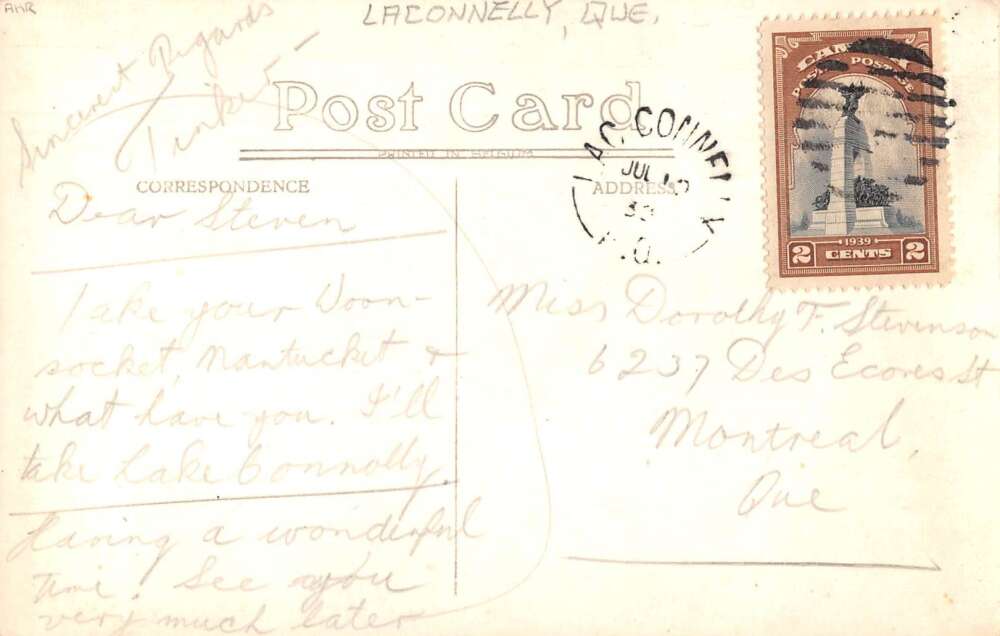 AMR
LACONNELLY, QUE.
Sincerest Regards
Tinker
Post Card
PRINTED IN BELGIUM
CORRESPONDENCE
ADDRESS
LAC CONNELLY
JUL
39
P.Q.
CANADA
POSTES POSTAGE
1939
2 CENTS 2
Dear Steven
Take your Woon-
socket, Nantucket &
what have you. I'll
take Lake Connolly.
Having a wonderful
time. See you
very much later
Miss Dorothy F. Stevenson
6237 Des Ecores St
Montreal,
Que